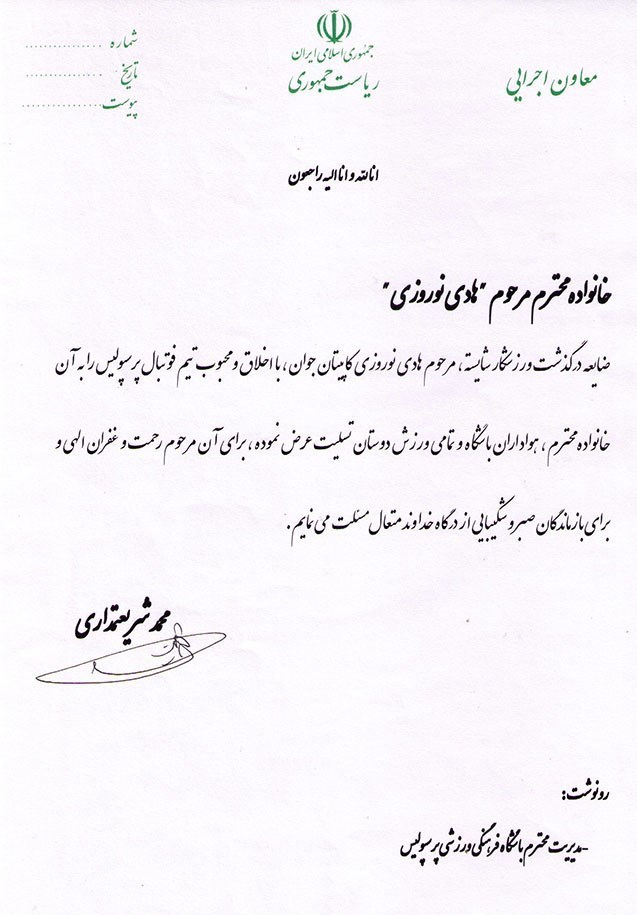 جمهوری اسلامی ایران
ریاست جمهوری
معاون اجرایی
شماره ................
تاریخ ................
پیوست ................
انا لله و انا الیه راجعون
خانواده محترم مرحوم "هادی نوروزی"
ضایعه درگذشت ورزشکار شایسته، مرحوم هادی نوروزی کاپیتان جوان، با اخلاق و محبوب تیم فوتبال پرسپولیس را به آن
خانواده محترم، هواداران باشگاه و تمامی ورزش دوستان تسلیت عرض نموده، برای آن مرحوم رحمت و غفران الهی و
برای بازماندگان صبر و شکیبایی از درگاه خداوند متعال مسئلت می نمایم.
محمد شریعتمداری
رونوشت:
-مدیریت محترم باشگاه فرهنگی ورزشی پرسپولیس